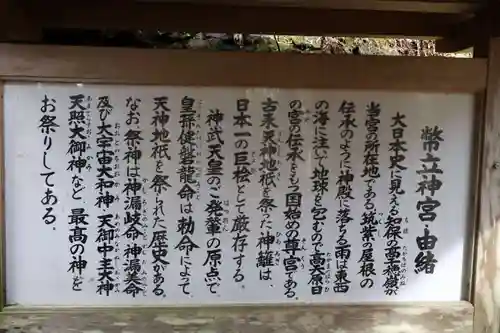 幣立神宮由緒
大日本史に見える知保の高千穂嶽が
当宮の所在地である。筑紫の屋根の
伝承のように神殿に落ちる雨は東西
の海に注いで地球を包むので高天原日
の宮の伝承をもつ国始めの尊宮である。
古来天神地祇を祭った神籬は、
日本一の巨桧として厳存する。
神武天皇のご発輦の原点で、
皇孫健磐龍命は勅命によって
天神地祇を祭られた歴史がある。
なお祭神は神漏岐命 神漏美命
及び大宇宙大和神 天御中主大神
天照大御神など、最高の神を
お祭りしてある。